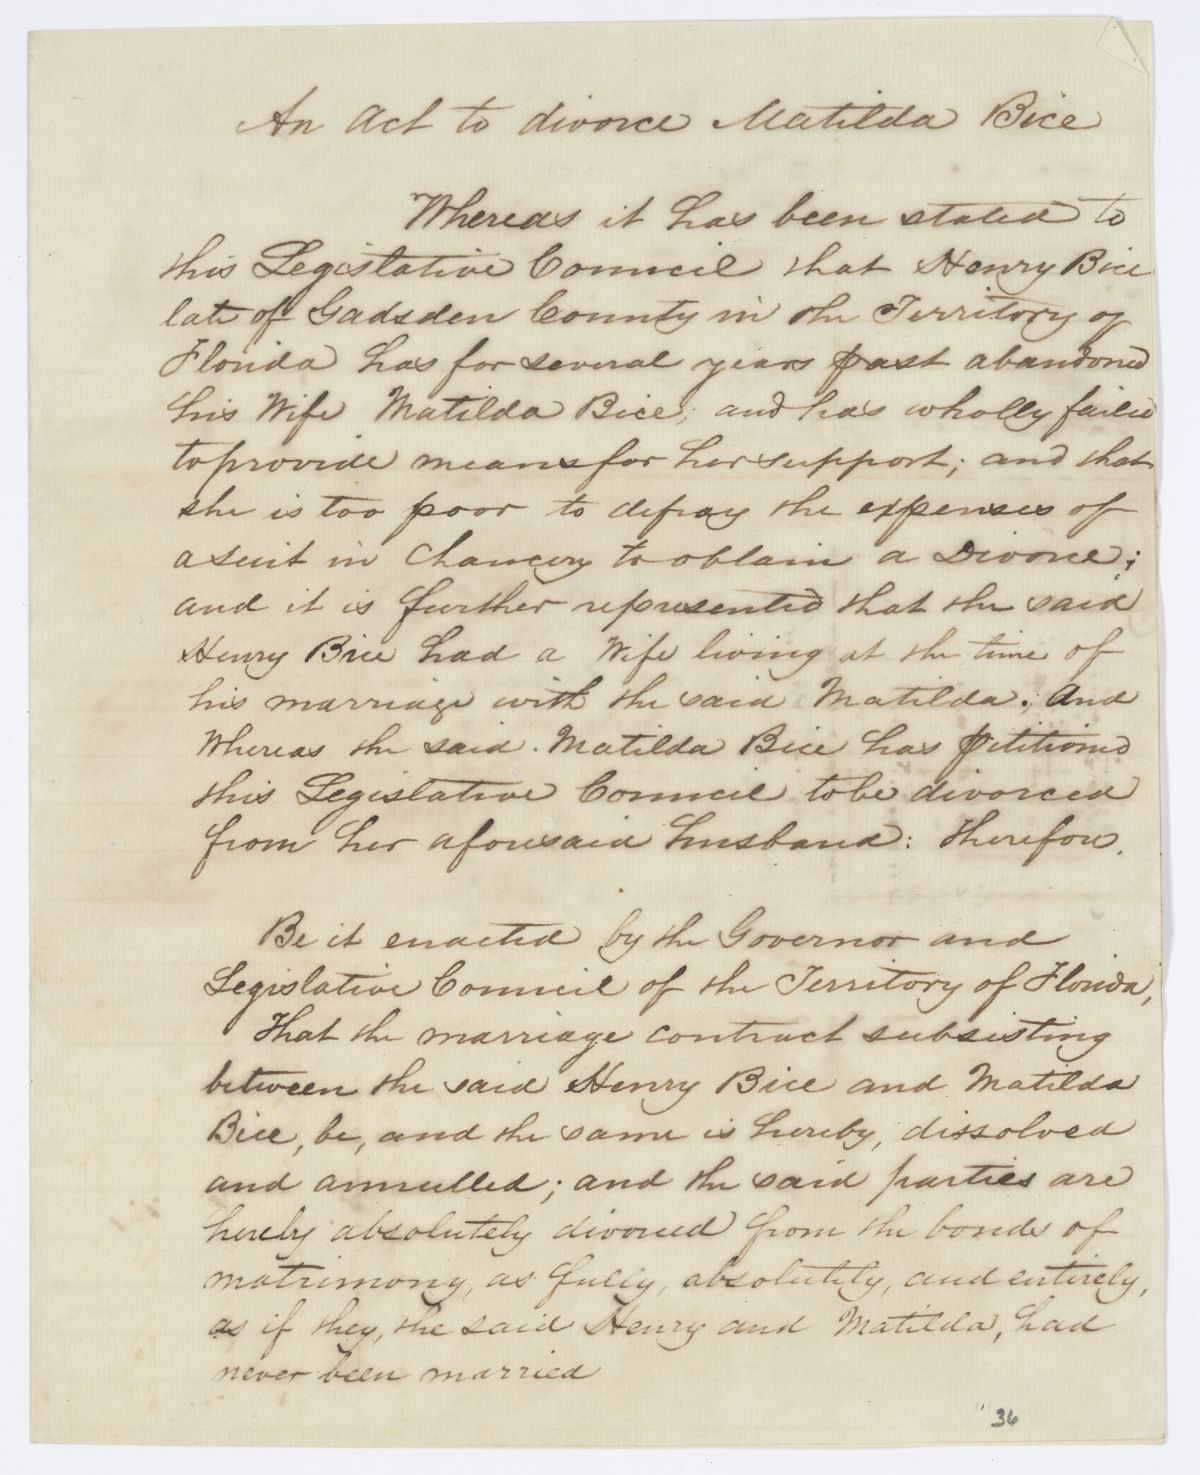 An Act to divorce Matilda Bice
Whereas it has been stated to
this Legislative Council that Henry Bice
late of Gadsden County in the Territory of
Florida has for several years past abandoned
his Wife Matilda Bice; and has wholly failed
to provide means for her support; and that
she is too poor to defray the expenses of
a suit in Chancery to obtain a Divorce;
and it is further represented that the said
Henry Bice had a Wife living at the time of
his marriage with the said Matilda. And
Whereas the said Matilda Bice has petitioned
this Legislative Council to be divorced
from her aforesaid husband: Therefore.
Be it enacted by the Governor and
Legislative Council of the Territory of Florida,
That the marriage contract subsisting
between the said Henry Bice and Matilda
Bice, be, and the same is hereby, dissolved
and annulled; and the said parties are
hereby absolutely divorced from the bonds of
matrimony, as fully, absolutely, and entirely,
as if they, the said Henry and Matilda, had
never been married
36